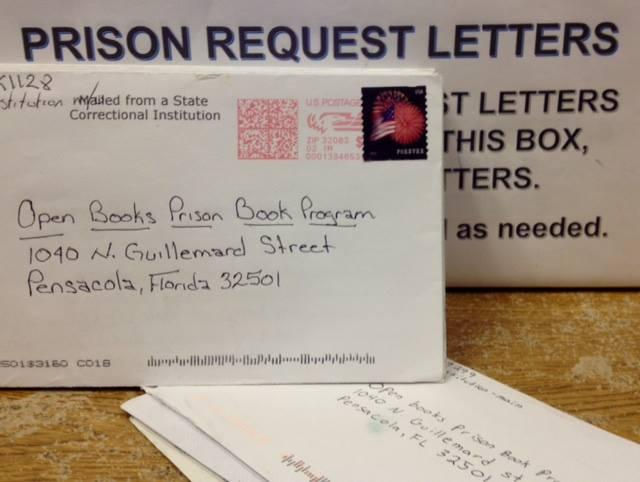 PRISON REQUEST LETTERS
ST LETTERS
THIS BOX,
TTERS.
as needed.
K1128
stitution
Mailed from a State
Correctional Institution
U.S. POSTAGE
ZIP 32083 $
02 1H
USA
FOREVER
Open Books Prison Book Program
1040 N. Guillemard Street
Pensacola, Florida 32501
C018
stitution-main
Open books Prison Book Pr
1040 N Guillemard st
Pensacola, FL
32501